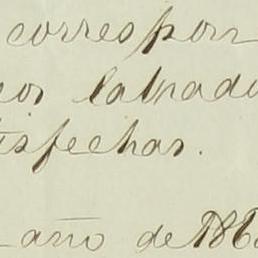 correspon
os labrado
isfechas.
año de 186